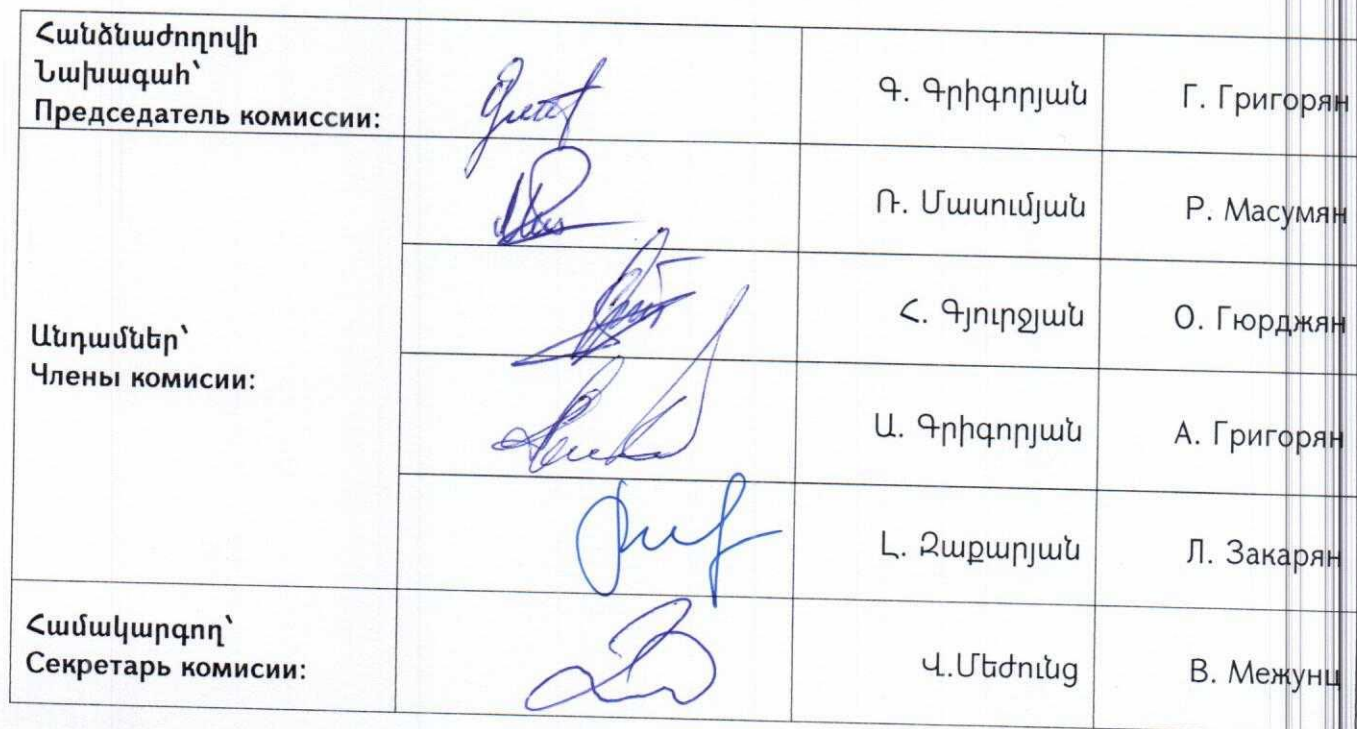 Հանձնաժողովի
Նախագահ՝
Председатель комиссии:
Գ. Գրիգորյան
Г. Григорян
Անդամներ՝
Члены комисии:
Ռ. Մասումյան
Р. Масумян
Հ. Գյուրջյան
О. Гюрджян
Ա. Գրիգորյան
А. Григорян
Լ. Զաքարյան
Л. Закарян
Համակարգող՝
Секретарь комисии:
Վ.Մեժունց
В. Межунц